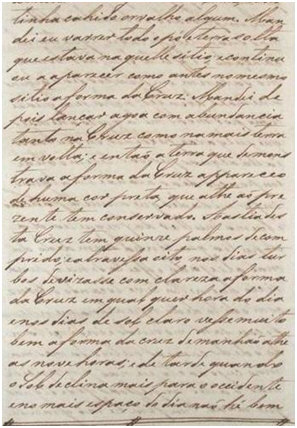 tinha cahido orvalho algum. Man-
dei eu varrer todo o pó, e terra solta
que estava naquelle sitio, e continu
ou a aparecer como antes no mesmo
sitio a forma da Cruz. Mandei de
pois lançar agoa com abundancia
tanto na Cruz como na mais terra
em volta; e então a terra que demons
trava a forma da Cruz appareceo
de huma cor preta, que athe ao pre
zente tem conservado. A astia des
ta Cruz tem quinze palmos de com
prido, e a travessa oito, nos dias tur
bos devizasse com clareza a forma
da Cruz em qual quer hora do dia
e nos dias de sol claro vesse muito
bem a forma da cruz de manhãa athe
as nove horas, e de tarde quando
o sol declina mais para o occidente
e no mais espaço do dia não hé bem